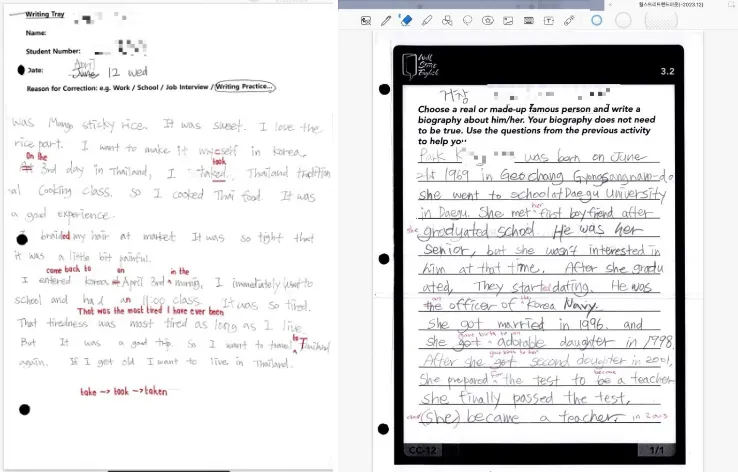 Writing Tray
Name:
Student Number:
April
Date: June 12 wed
Reason for Correction: e.g. Work / School / Job Interview / Writing Practice...
was Mango sticky rice. It was sweet. I love the
rice part. I want to make it myself in Korea.
On the took
At 3rd day in Thailand, I taked Thailand tradition
al Cooking class. So I cooked Thai food. It was
a good experience.
I braided my hair at market It was so tight that
it was a little bit painful.
come back to on in the
I entered Korea at April 3rd morning. I immediately went to
school and had an class. It was so tired.
That was the most tired I have ever been
That tiredness was most tired as long as I live.
But It was a good trip. So I want to travel to Thailand
again. If I get old I want to live in Thailand.
take → took → taken
월스트리트팬드러풋(~2023.12)
Wall
Street
English
3.2
거창
Choose a real or made-up famous person and write a
biography about him/her. Your biography does not need
to be true. Use the questions from the previous activity
to help you
Park K was born on June
21st 1969 in Geochang Gyongsangnam-do
she went to school at Daegu University
in Daegu. She met her first boyfriend after
she graduated school. He was her
senior, but she wasn't interested in
him at that time. After she gradu
ated, They started dating. He was
an the officer of the Korea Navy.
She got married in 1996. and
gave birth to an
she got adorable daughter in 1998.
gave birth to her
After she got second daughter in 2001,
for become
She prepared the test to be a teacher
she finally passed the test,
and (she) became a teacher. in 2005
CC-12
1/1